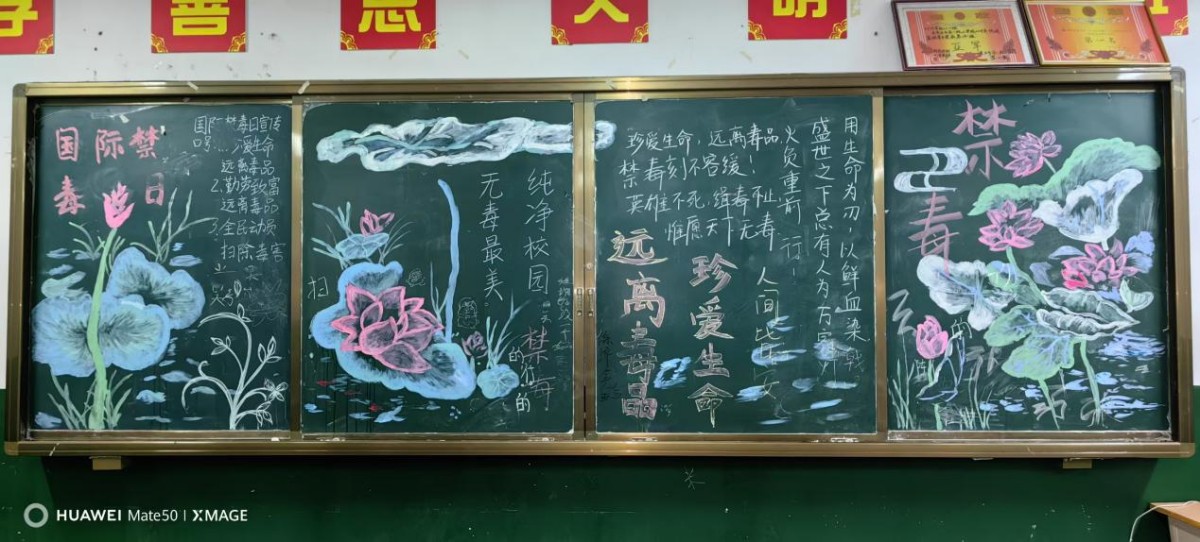 善
思
文
明
亚军
第一名
国际禁
毒日
国际禁毒日宣传
口号
爱生命
远离毒品
2.勤劳致富
远离毒品
3.全民动员
扫除毒害
纯净校园
无毒最美
扫
禁毒
的
的
珍爱生命,远离毒品,
禁毒刻不容缓!
英雄不死,缉毒不止
惟愿天下无毒
人间
远离毒品
珍爱生命
用生命为刃,以鲜血染
盛世之下总有人为万家
火负重前行!
禁毒
的
HUAWEI Mate50 | XMAGE